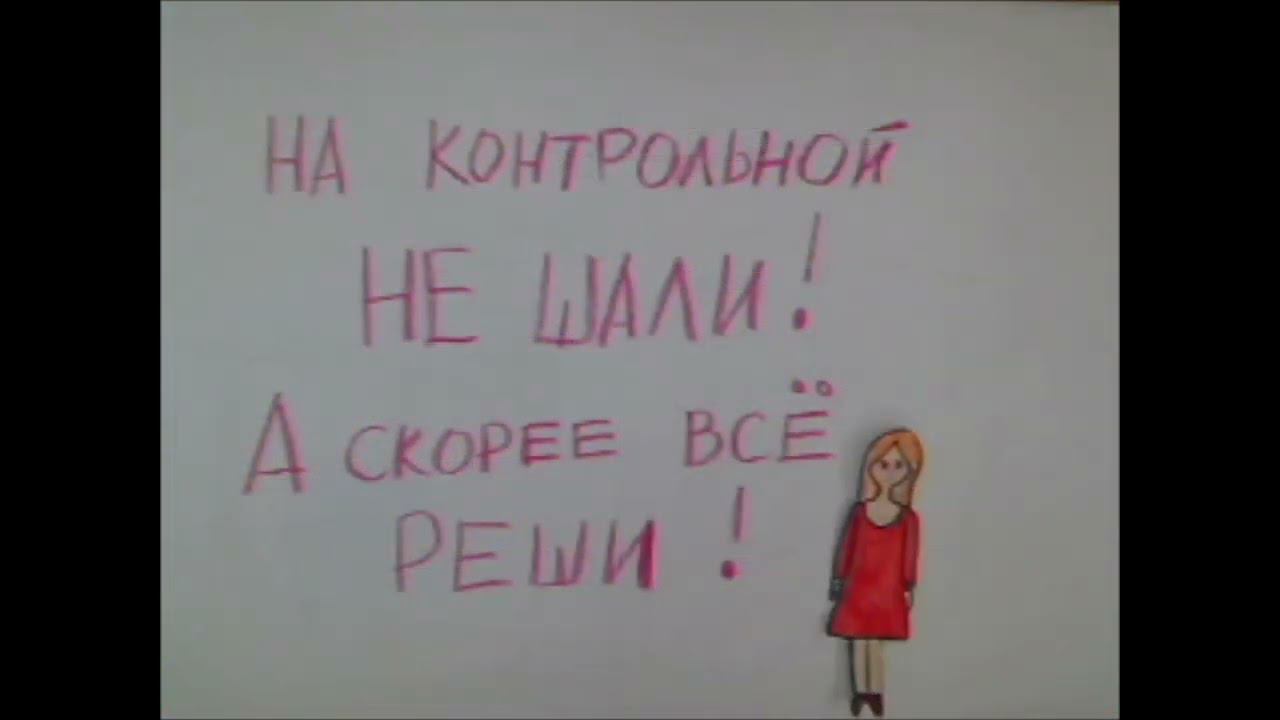 НА КОНТРОЛЬНОЙ
НЕ ШАЛИ!
А СКОРЕЕ ВСЁ
РЕШИ!